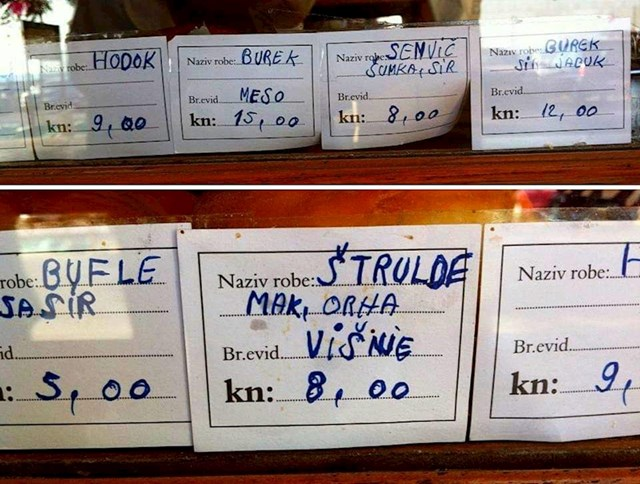 Naziv robe: HODOK
Br.evid.
kn: 9,00
Naziv robe: BUREK
Br.evid. MESO
kn: 15,00
Naziv robe: SENVIČ
ŠUMKA, SIR
Br.evid.
kn: 8,00
Naziv robe: BUREK
SIR JABUK
Br.evid.
kn: 12,00
robe: BUFLE
SA SIR
id.
n: 5,00
Naziv robe: ŠTRULDE
MAK, ORHA
Br.evid. VIŠNIE
kn: 8,00
Naziv robe: H
Br.evid.
kn: 9,